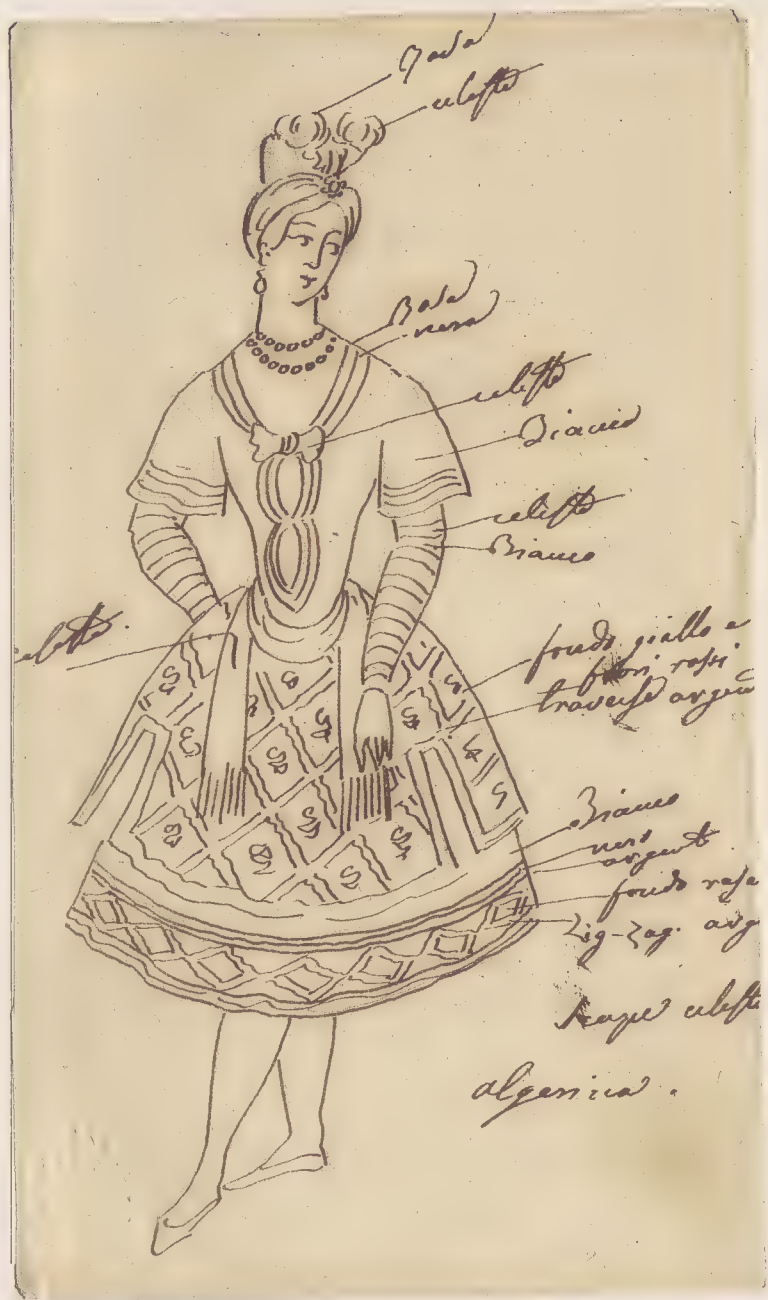 Rosa
celeste
Rosa
nera
celeste
Bianco
celeste
Bianco
celeste
fondo giallo e
fiori rossi
traverse argen
Bianco
nero
argento
fondo rosa
zig-zag. arg
scarpe celeste
algerina.